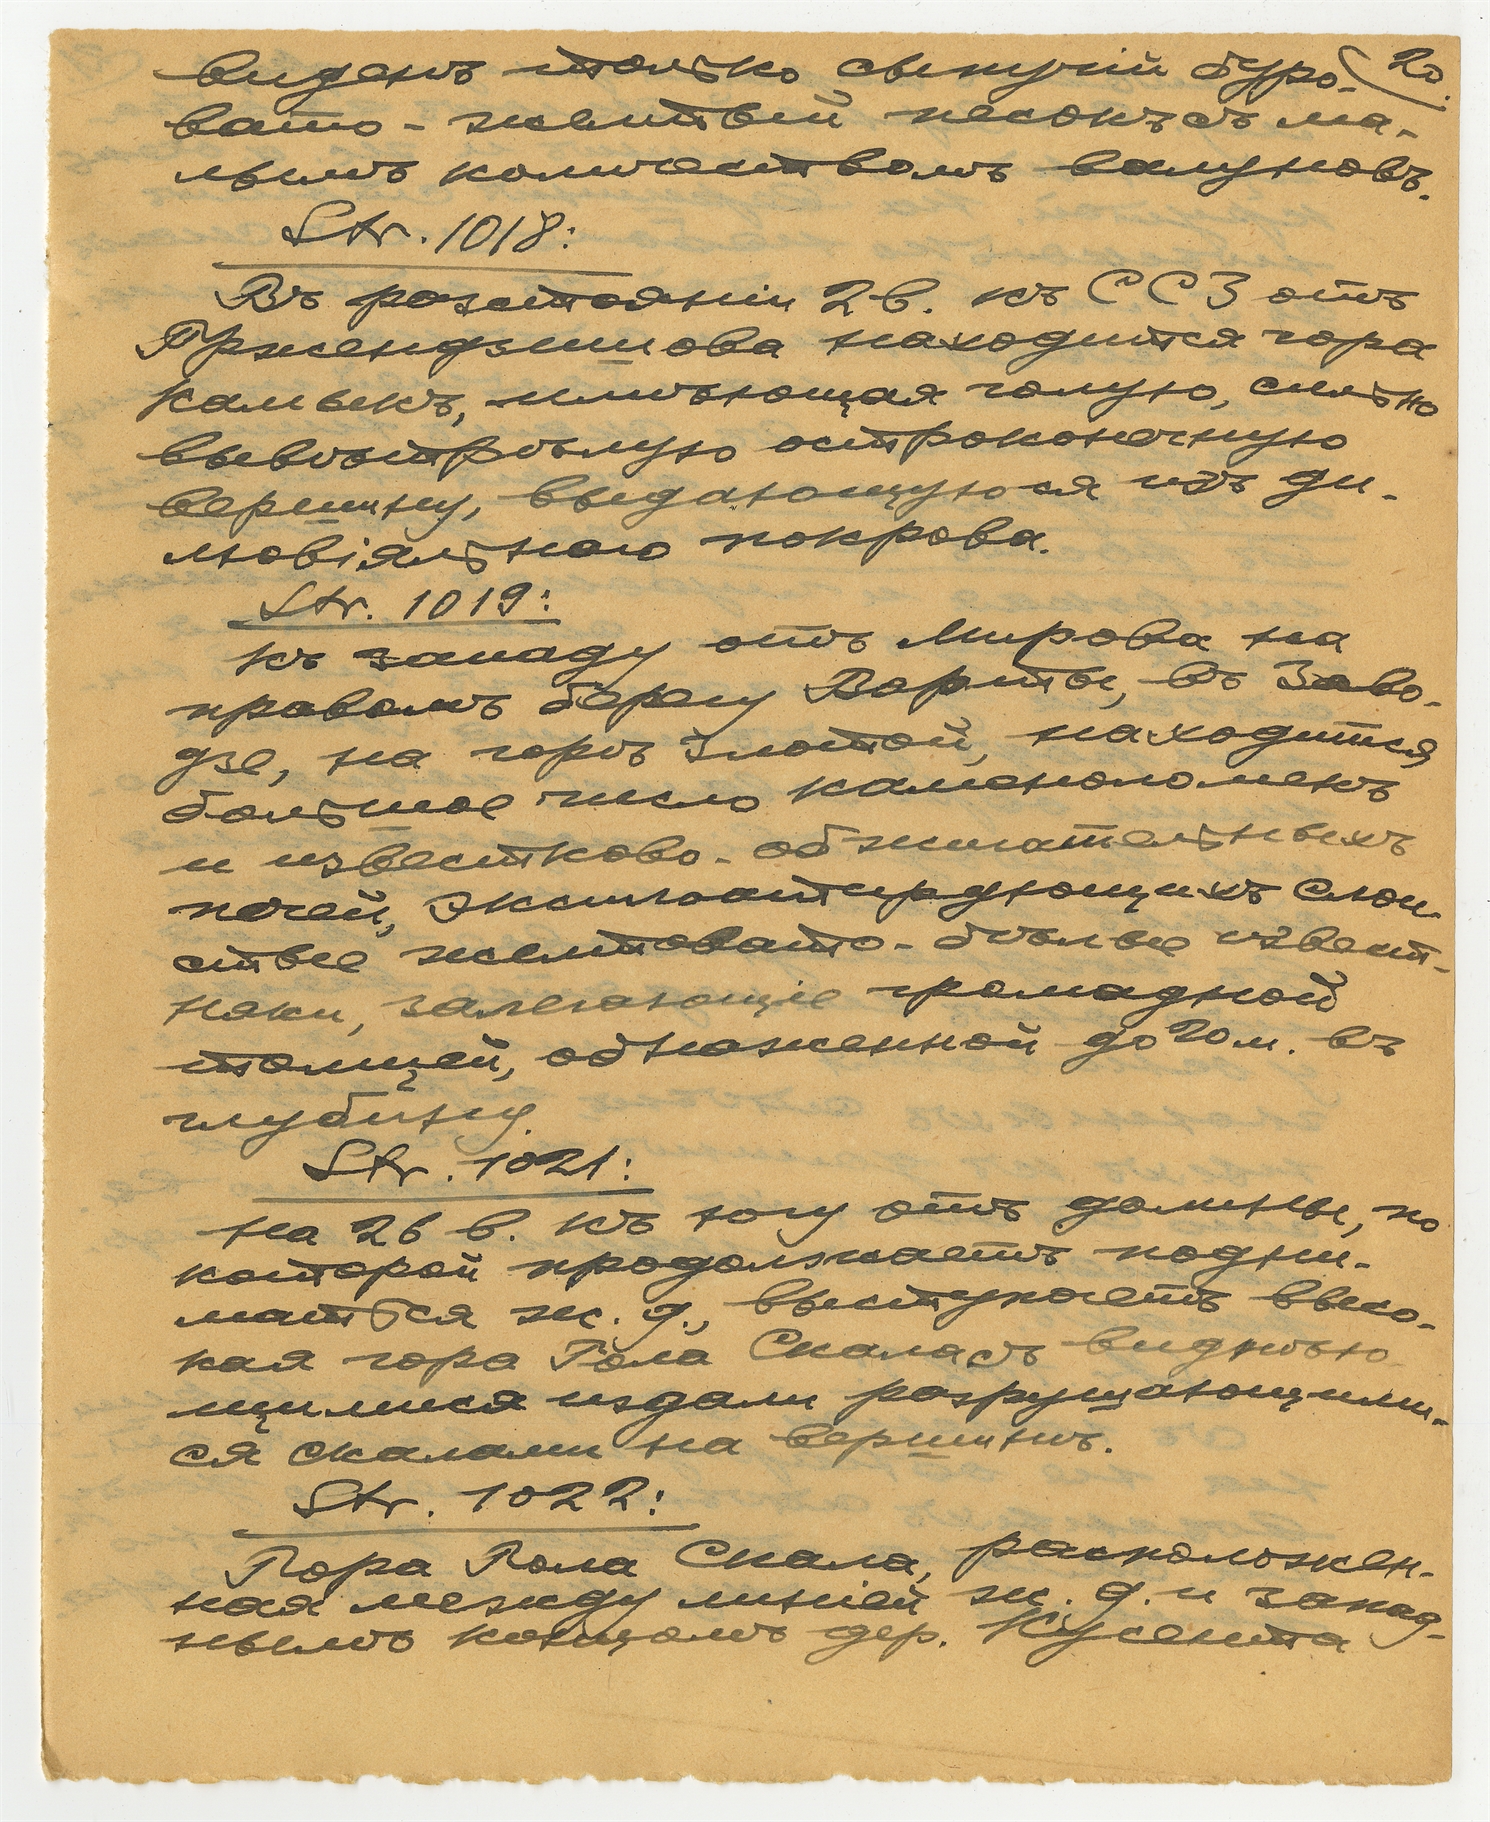 виденъ только сыпучій буро- 20.
вато-желтый песокъ съ ма-
лымъ количествомъ валуновъ.
Str. 1018:
Въ разстояніи 2 в. къ ССЗ отъ
Пржендзишова находится гора
Камыкъ, имѣющая голую, сильно
вывѣтрѣлую остроконечную
вершину, выдающуюся изъ ди-
лювіяльнаго покрова.
Str. 1019:
Къ западу отъ Мирова на
правомъ берегу Варты, въ Заво-
дзе, на горѣ Злотой, находится
большое число каменоломенъ
и известково-обжигательныхъ
печей, эксплоатирующихъ слои-
стые желтовато-бѣлые извест-
няки, залегающіе громадной
толщей, обнаженной до 20 м. въ
глубину.
Str. 1021:
На 26 в. къ югу отъ долины, по
которой продолжаетъ подни-
маться ж. д., выступаетъ высо-
кая гора Гола Скала съ виднѣю
щимися издали разрушающими-
ся скалами на вершинѣ.
Str. 1022:
Гора Гола Скала, расположен-
ная между линіей ж. д. и запад-
нымъ концомъ дер. Кусента